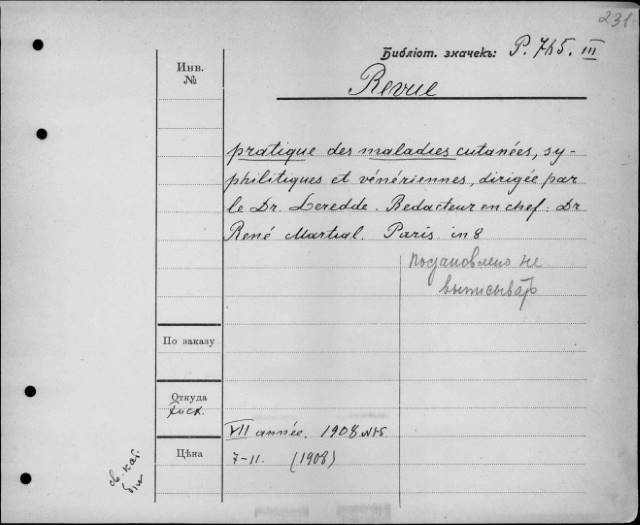 231
Библіот. значекъ: P. 765. III
Инв.
№
Revue
pratique des maladies cutanées, sy-
philitiques et vénériennes, dirigée par
le Dr. Leredde. Redacteur en chef: Dr
René Martial. Paris. in 8
постановлено не
выписывать
По заказу
Откуда
VII année. 1908
Цѣна
7-11. (1908)